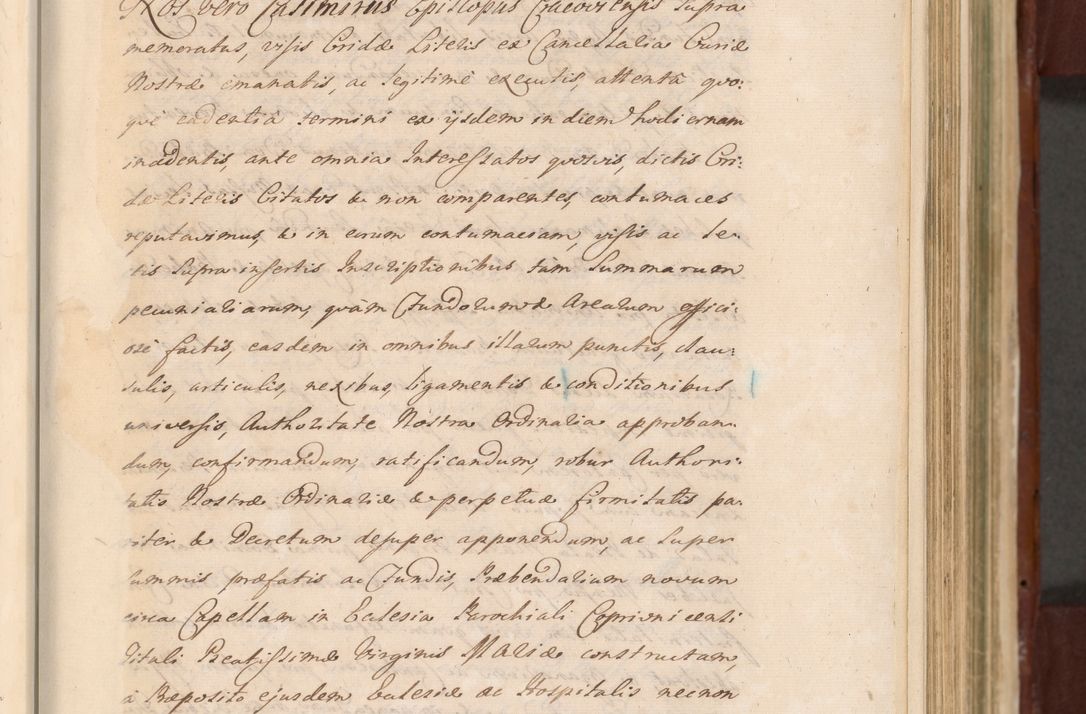 Nos vero Casimirus Episcopus Cracoviensis supra
memoratus, visis Cridæ Literis ex Cancellaria Curiæ
Nostræ emanatis, ac legitimè executis, attentâ quo:
què cadentiâ termini ex ijsdem in diem hodiernam
incidentis, ante omnia Interessatos quosvis, dictis Cri:
dæ Literis Citatos & non comparentes, contumaces
reputavimus, & in eorum contumaciam, visis ac le:
ctis supra insertis Inscriptionibus tàm Summarum
pecuniariarum, quàm Fundorum & Arearum offici:
osè factis, easdem in omnibus illarum punctis, clau:
sulis, articulis, nexibus, ligamentis & conditionibus
universis, Authoritate Nostra Ordinaria approban:
dum, confirmandum, ratificandum, robur Authori:
tatis Nostræ Ordinariæ & perpetuæ firmitatis pa:
riter & Decretum desuper apponendum, ac super
summis præfatis ac Fundis, Præbendarium novum
circa Capellam in Ecclesia Parochiali Coprivnicensi
Tituli Beatissimæ Virginis MARIÆ constructam,
à Præposito ejusdem Ecclesiæ ac Hospitalis necnon